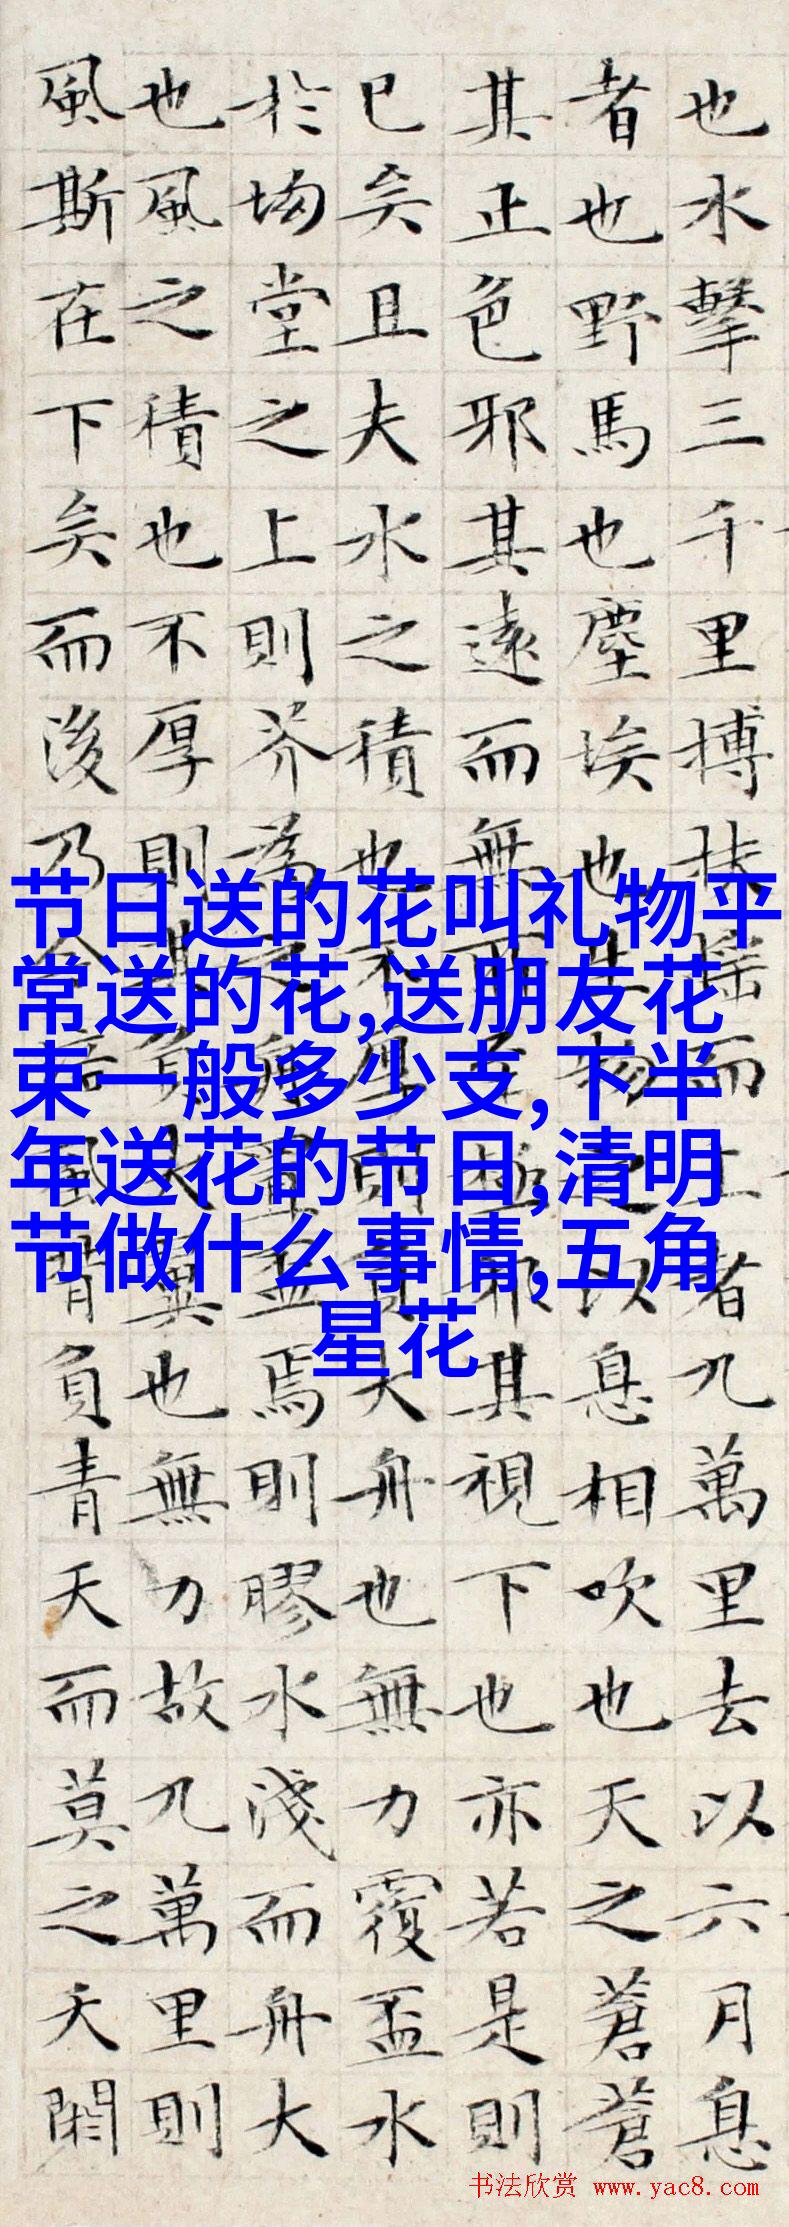 也水擊三千里搏扶搖而上者九萬里去以六月息
者也野馬也塵埃也生物之以息相吹也天之蒼蒼
其正色邪其遠而無所至極邪其視下也亦若是則
已矣且夫水之積也不厚則負大舟也無力覆盃水
於坳堂之上則芥為之舟置盃焉則膠水淺而舟大
也風之積也不厚則其負大翼也無力故九萬里則
風斯在下矣而後乃今培風背負青天而莫之夭閼
节日送的花叫礼物平
常送的花,送朋友花
束一般多少支,下半
年送花的节日,清明
节做什么事情,五角
星花
书法欣赏 www.yac8.com